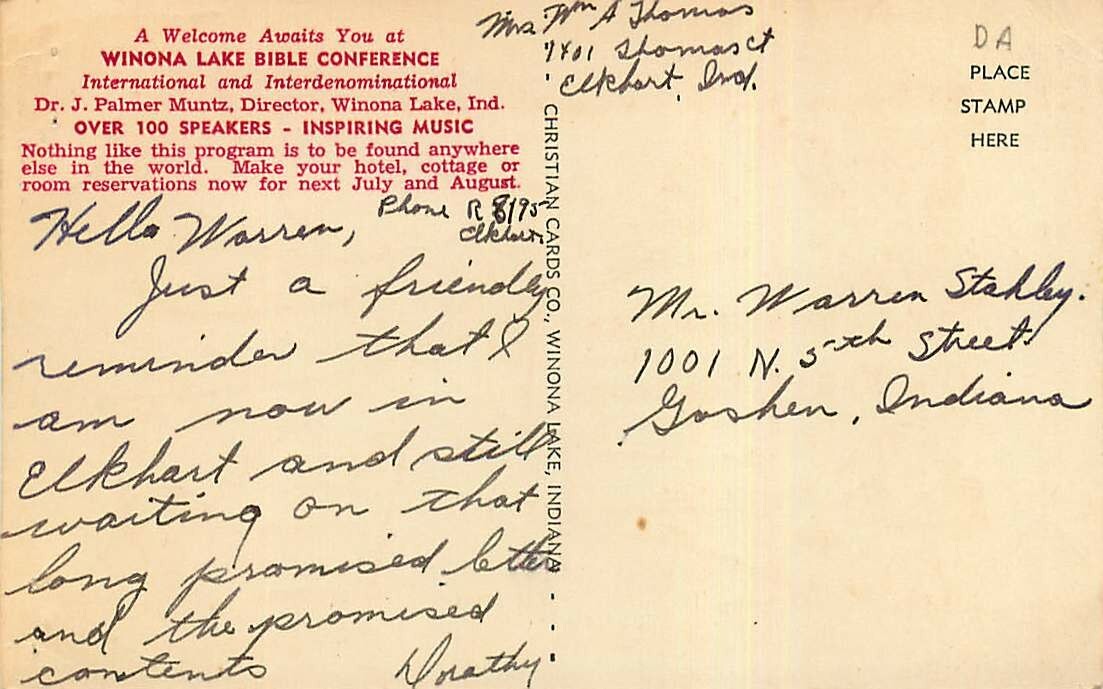 A Welcome Awaits You at
WINONA LAKE BIBLE CONFERENCE
International and Interdenominational
Dr. J. Palmer Muntz, Director, Winona Lake, Ind.
OVER 100 SPEAKERS - INSPIRING MUSIC
Nothing like this program is to be found anywhere
else in the world. Make your hotel, cottage or
room reservations now for next July and August.
Mrs. Wm A Thomas
1401 Thomas Ct
Elkhart, Ind.
Phone R 8195
Elkhart
Hello Warren,
Just a friendly
reminder that I
am now in
Elkhart and still
waiting on that
long promised letter
and the promised
contents Dorathy
CHRISTIAN CARDS CO., WINONA LAKE, INDIANA
DA
PLACE
STAMP
HERE
Mr. Warren Stahley.
1001 N. 5th Street
Goshen, Indiana